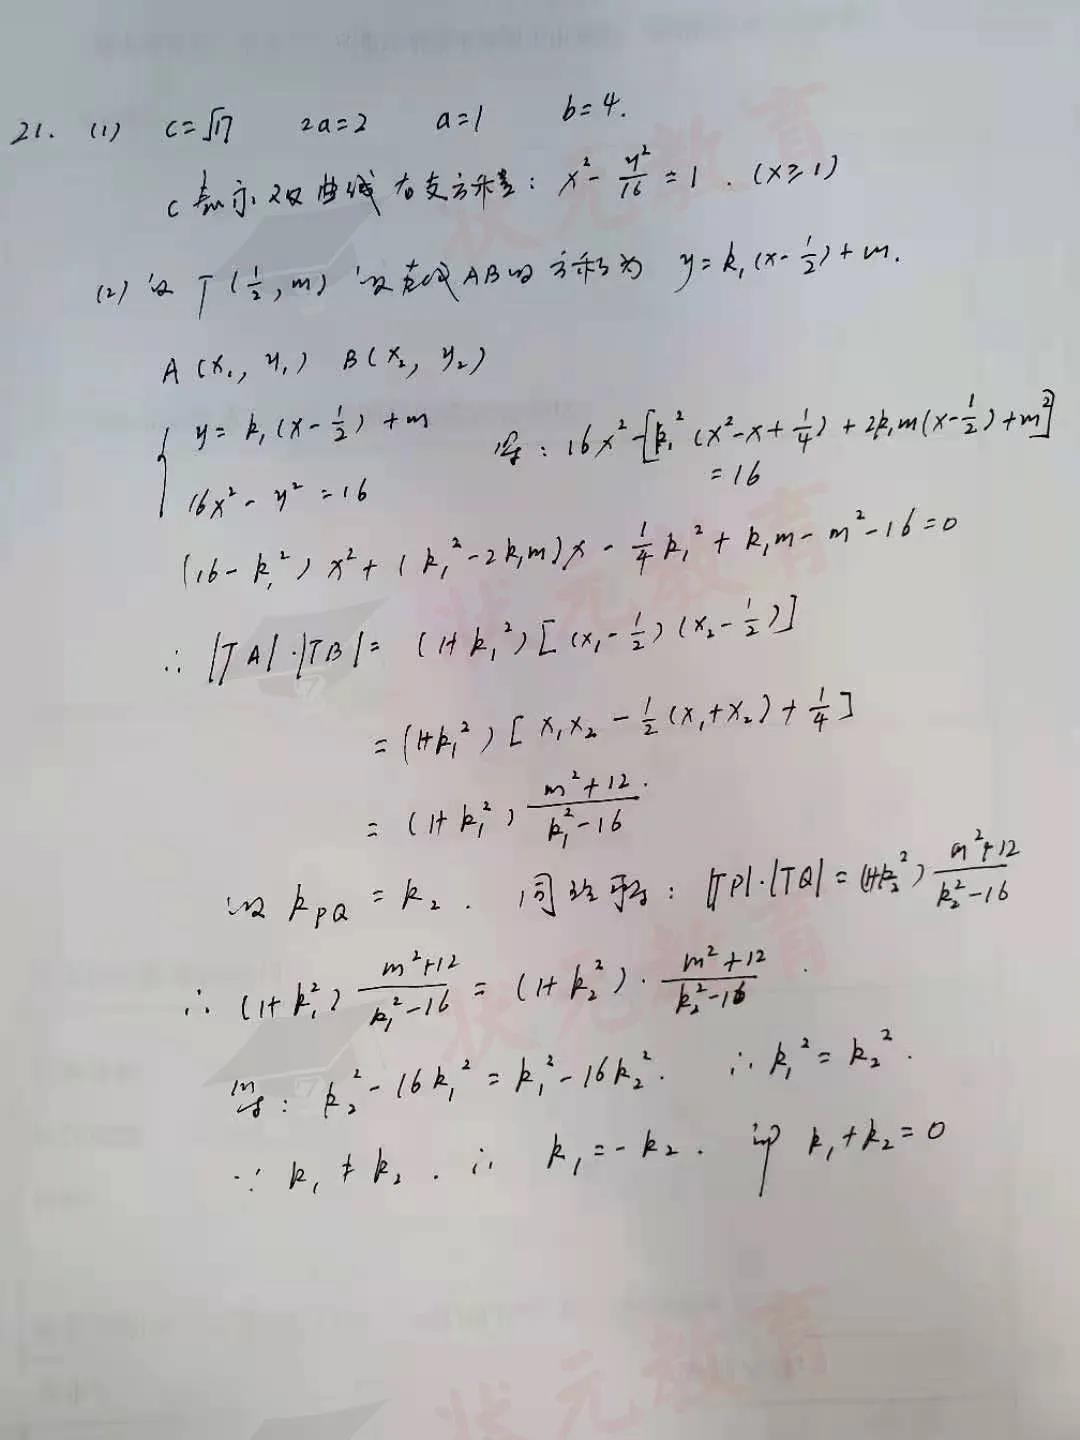 21. (1) c=√17 2a=2 a=1 b=4.
C表示双曲线右支方程: x²-y²/16=1. (x≥1)
(2) 设T(1/2,m) 设直线AB的方程为 y=k₁(x-1/2)+m.
A(x₁,y₁) B(x₂,y₂)
{ y=k₁(x-1/2)+m
16x²-y²=16
得: 16x²-[k₁²(x²-x+1/4)+2k₁m(x-1/2)+m²]
=16
(16-k₁²)x²+(k₁²-2k₁m)x-1/4k₁²+k₁m-m²-16=0
∴|TA|·|TB|=(1+k₁²)[(x₁-1/2)(x₂-1/2)]
=(1+k₁²)[x₁x₂-1/2(x₁+x₂)+1/4]
=(1+k₁²)(m²+12)/(k₁²-16).
设k_PQ=k₂. 同理可得: |TP|·|TQ|=(1+k₂²)(m²+12)/(k₂²-16)
∴(1+k₁²)(m²+12)/(k₁²-16)=(1+k₂²)·(m²+12)/(k₂²-16).
得: k₂²-16k₁²=k₁²-16k₂². ∴k₁²=k₂².
∵k₁≠k₂. ∴ k₁=-k₂. 即k₁+k₂=0
状元教育
状元教育
状元教育
状元教育